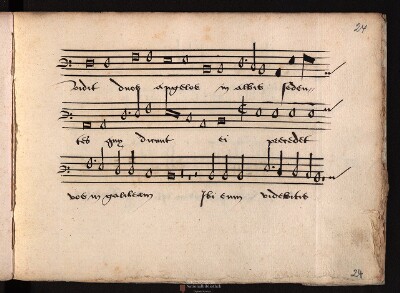 24
vidit duos angelos in albis seden-
tes qui dicunt ei precedet
vos in galileam Ibi eum videbitis
24